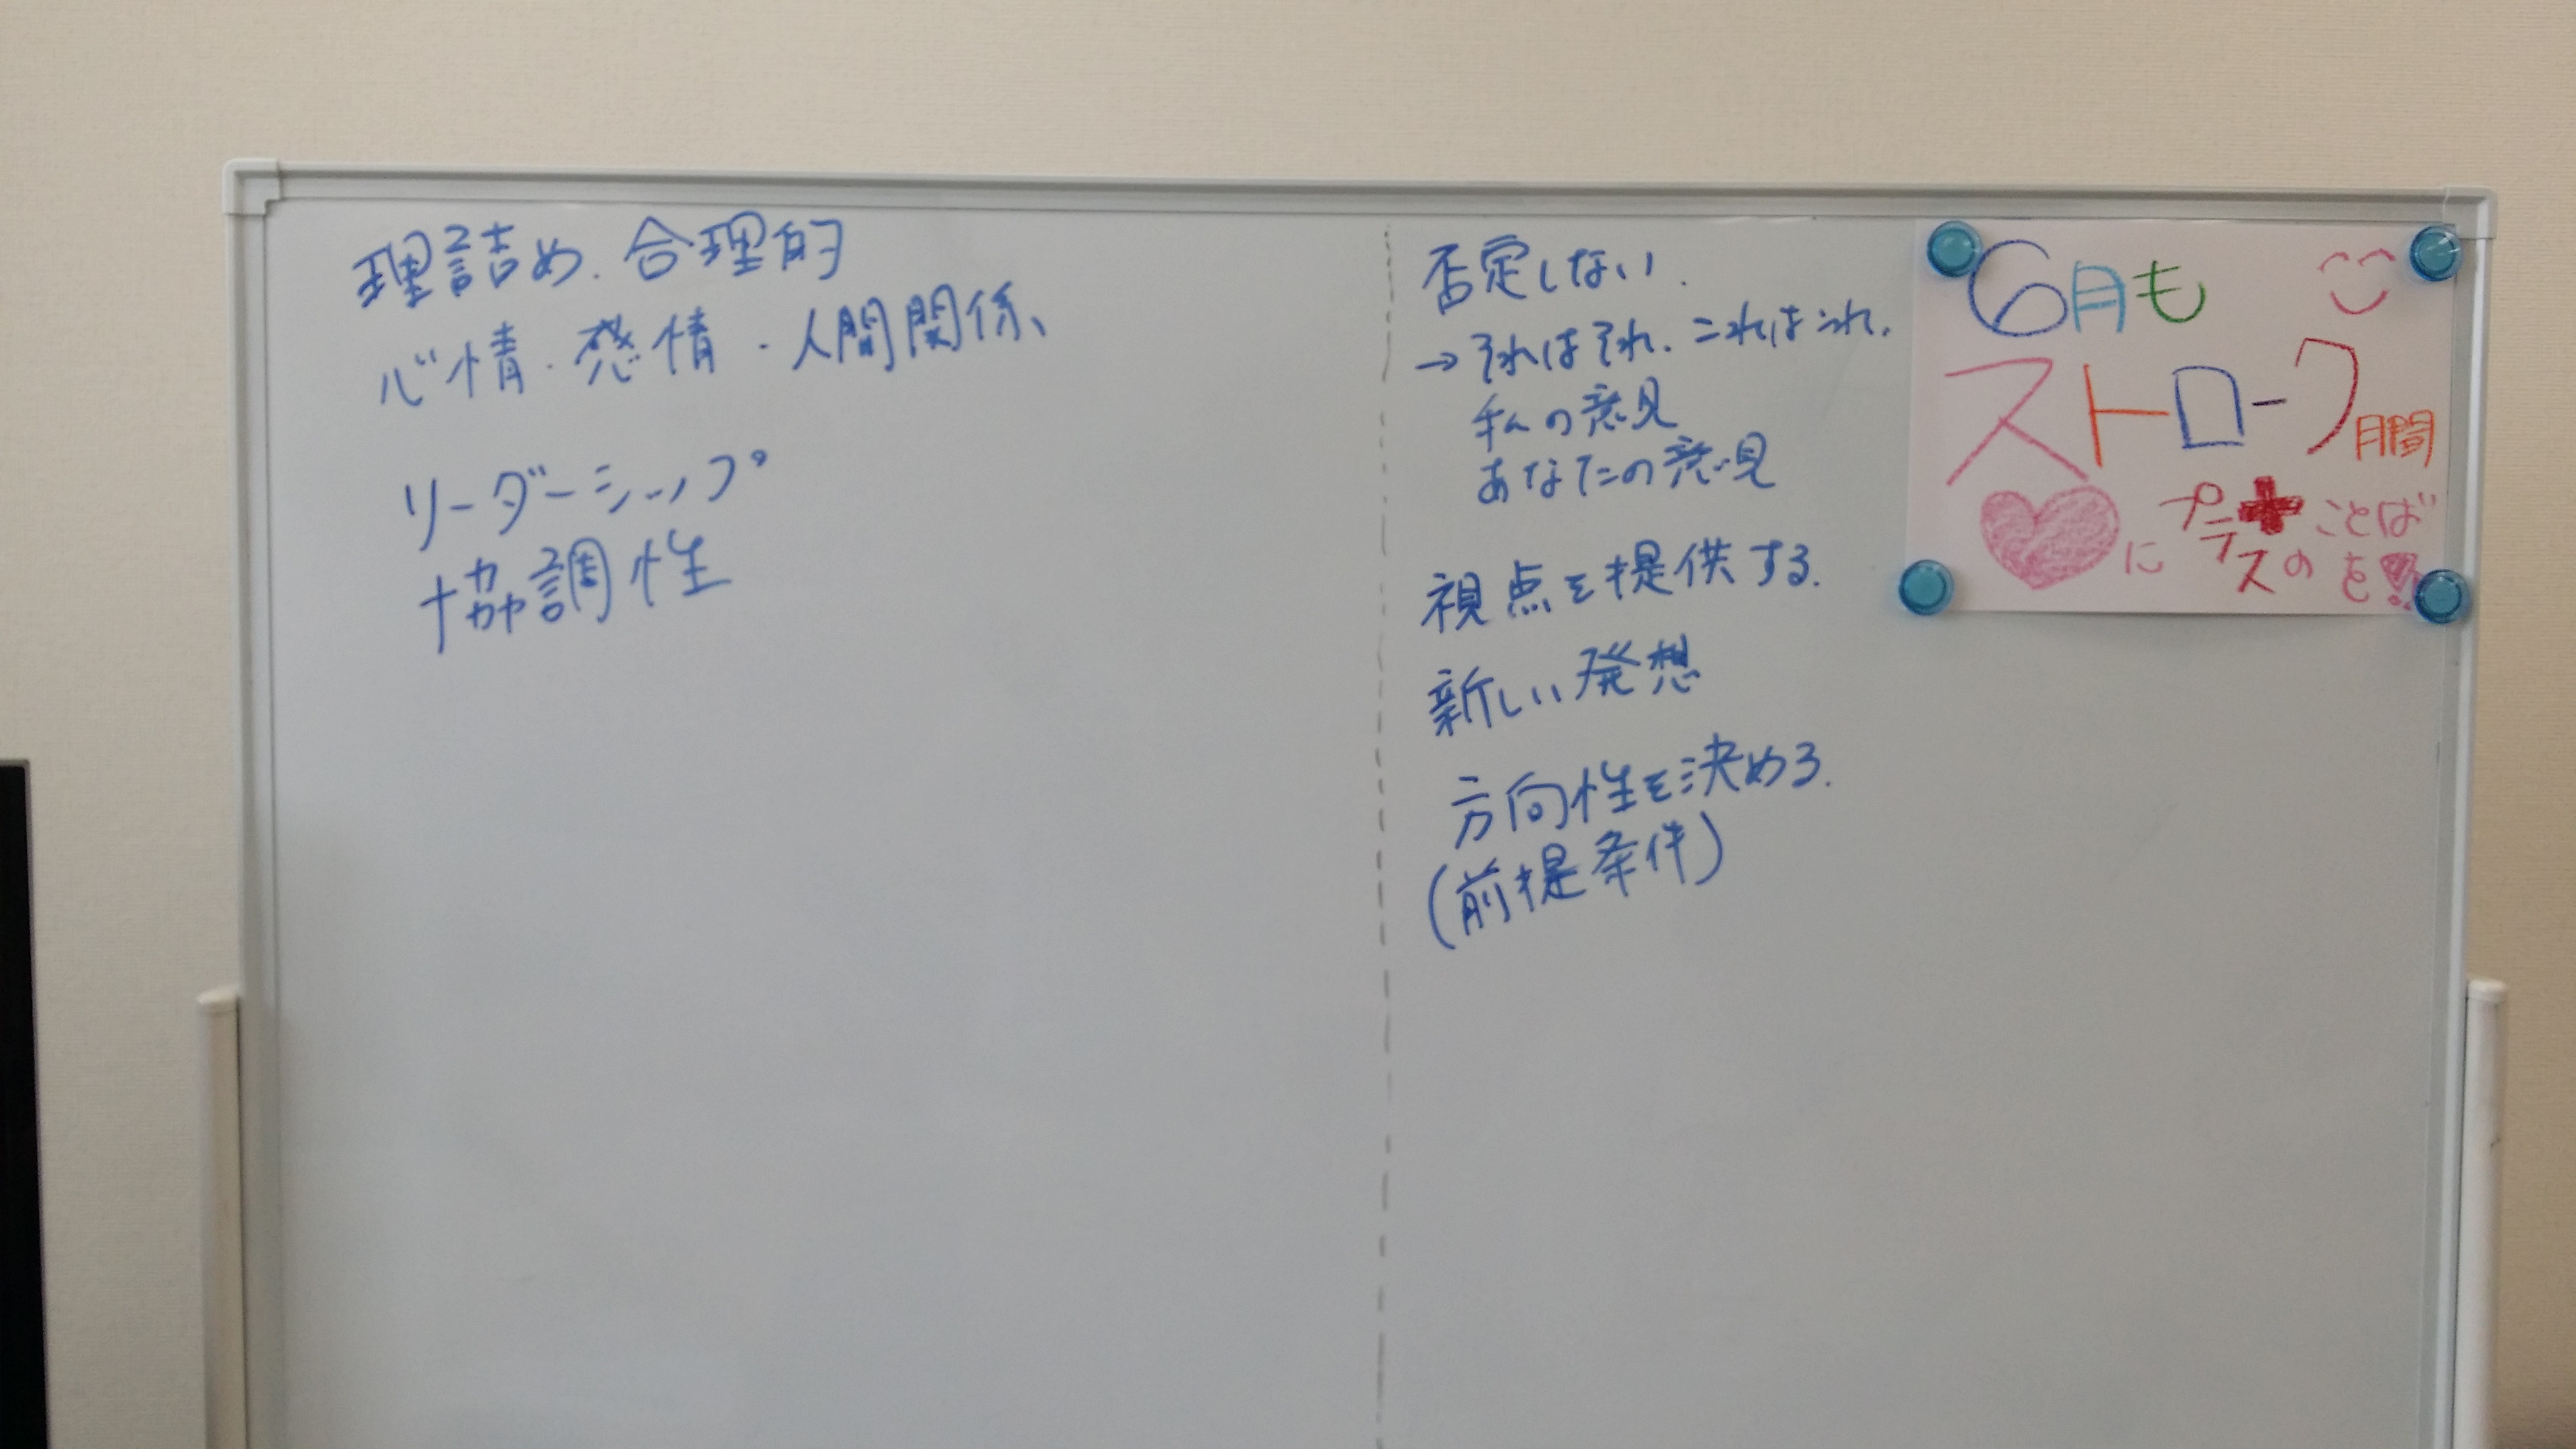 理詰め.合理的
心情・感情・人間関係、
リーダーシップ
協調性
否定しない.
→それはそれ.これはこれ.
私の意見
あなたの意見
視点を提供する.
新しい発想
方向性を決める.
(前提条件)
6月も
ストローク月間
にプラスのことばを!